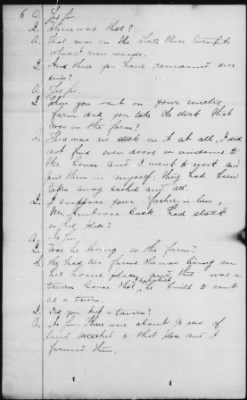 6 A. Yes Sir.
Q. Where was that?
A. That was on the River
where I now reside.
Q. And there you have remained ever
since?
A. Yes sir.
Q. When you went on your
farm did you take the stock that
was on the farm?
A. There was no stock on it at all, I did
not find even doors or windows to
the house and I went to work and
put them in myself. They had been
taken away sashes and all.
Q. I suppose your father-in-law,
Mr. had stock
on his place?
A. No Sir.
Q. Was he living on the farm?
A. He had two farms. He was living on
his home place, and this was a
tavern house that he built to rent
as a tavern.
Q. Did you keep a tavern?
A. No Sir. There were about acres of
land attached to that place and I
farmed them.